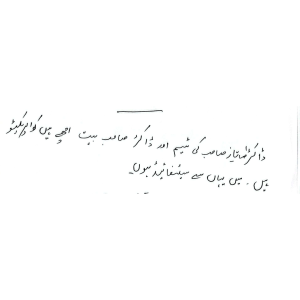 ڈاکٹر امتیاز صاحب کی ٹیم اور ڈاکٹر صاحب بہت اچھے ہیں کوآپریٹیو
ہیں۔ میں یہاں سے سیٹسفائیڈ ہوں۔